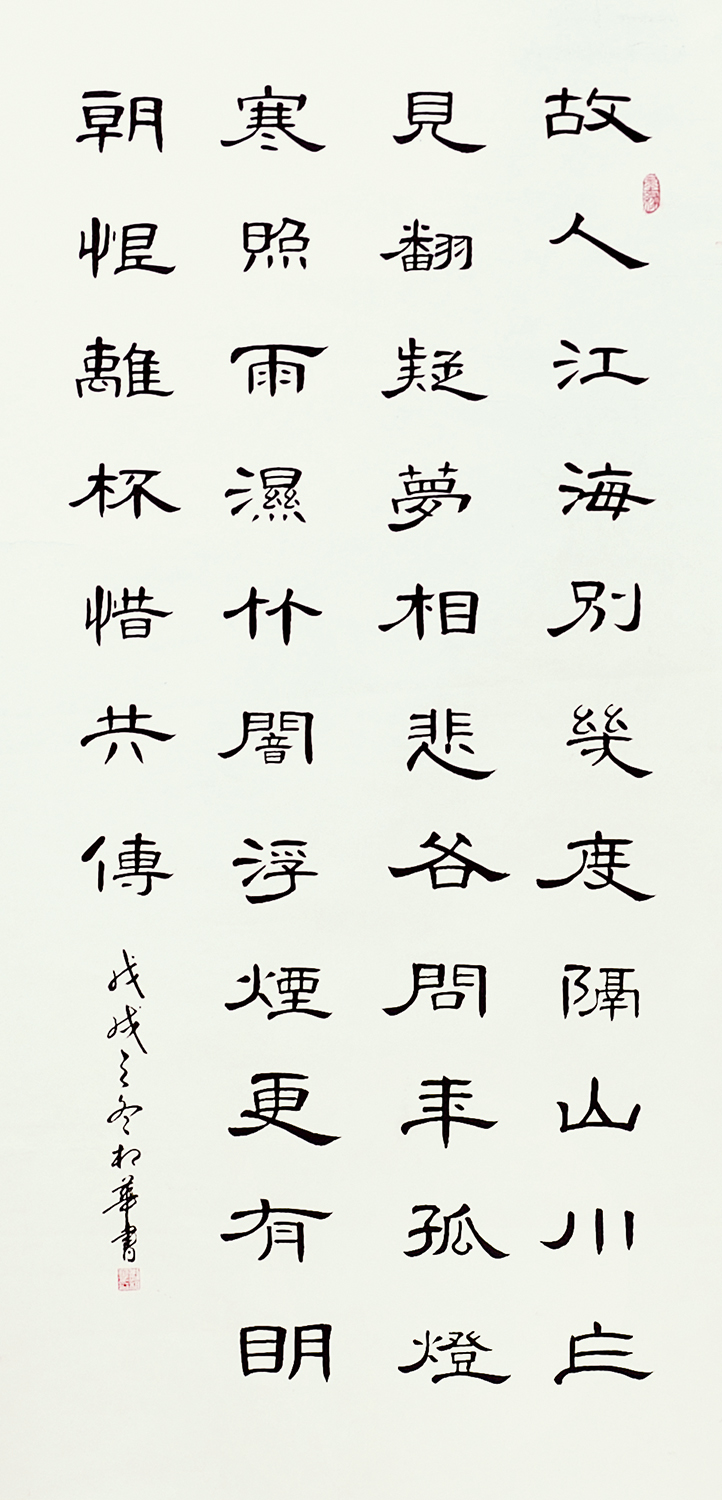 故人江海別幾度隔山川乍
見翻疑夢相悲各問年孤燈
寒照雨濕竹闇浮煙更有明
朝恨離杯惜共傳
戊戌之冬華書